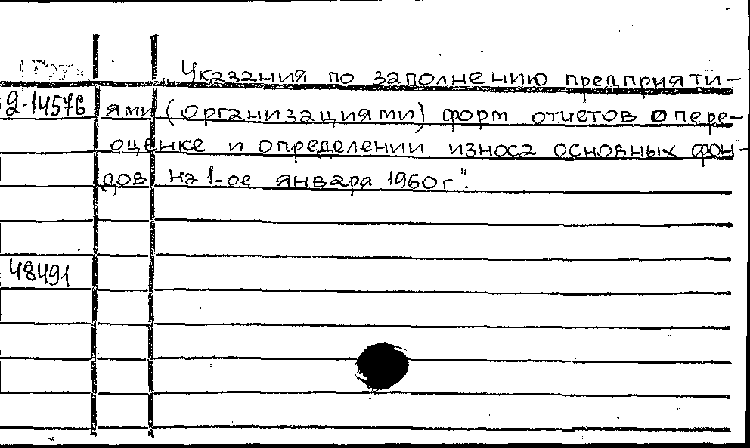 „Указания по заполнению предприяти-
9-14576 ями (организациями) форм отчетов о пере-
оценке и определении износа основных фон-
дов на 1-ое января 1960 г".
48491